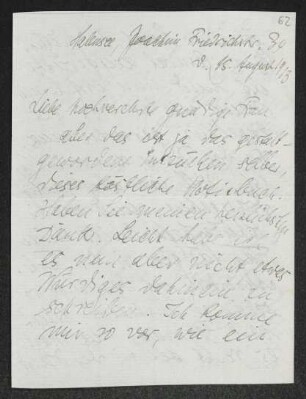 62
Halensee, Joachim Friedrichstr. 30
d. 15. August 1913
Liebe hochverehrte gnädige Frau
aber das ist ja das gestalt-
gewordene Entzücken selber,
dieses köstliche Notizbuch.
Haben Sie meinen herzlichsten
Dank. Leicht habe ich
es nun aber nicht etwas
Würdiges dahinein zu
schreiben. Ich komme
mir so vor, wie ein